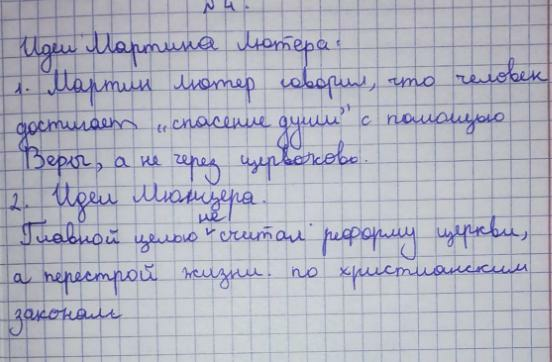 № 4.
Идеи Мартина Лютера:
1. Мартин Лютер говорил, что человек
достигает „спасение души" с помощью
Веры, а не через церковково.
2. Идеи Мюнцера.
Главной целью не считал реформу церкви,
а перестрой жизни. по христианским
законам